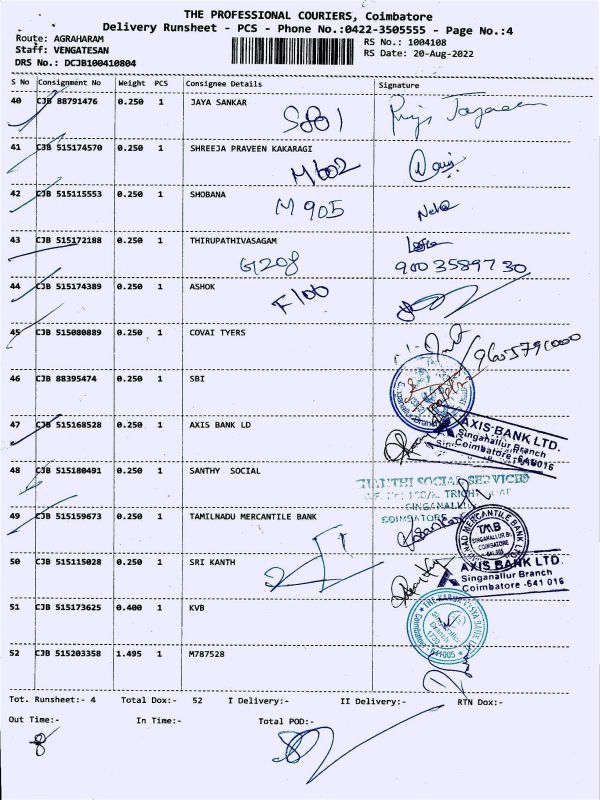 THE PROFESSIONAL COURIERS, Coimbatore
Delivery Runsheet - PCS - Phone No.:0422-3505555 - Page No.:4
Route: AGRAHARAM
RS No.: 1004108
Staff: VENGATESAN
RS Date: 20-Aug-2022
DRS No.: DCJB100410804
S No Consignment No Weight PCS Consignee Details Signature
40 CJB 88791476 0.250 1 JAYA SANKAR
S801
41 CJB 515174570 0.250 1 SHREEJA PRAVEEN KAKARAGI
M602
42 CJB 515115553 0.250 1 SHOBANA
M 905
43 CJB 515172188 0.250 1 THIRUPATHIVASAGAM
G1208 9003589730
44 CJB 515174389 0.250 1 ASHOK
F100
45 CJB 515080889 0.250 1 COVAI TYERS
9605791000
46 CJB 88395474 0.250 1 SBI
47 CJB 515168528 0.250 1 AXIS BANK LD
AXIS BANK LTD.
Singanallur Branch
Coimbatore - 641 016
48 CJB 515180491 0.250 1 SANTHY SOCIAL
SOCIAL SERVICES
SINGANALLUR
COIMBATORE
49 CJB 515159673 0.250 1 TAMILNADU MERCANTILE BANK
MERCANTILE BANK LTD
TMB
SINGANALLUR BR.
COIMBATORE
50 CJB 515115028 0.250 1 SRI KANTH
AXIS BANK LTD.
Singanallur Branch
Coimbatore - 641 016
51 CJB 515173625 0.400 1 KVB
THE KARUR VYSYA BANK
52 CJB 515203358 1.495 1 M787528
Tot. Runsheet:- 4 Total Dox:- 52 I Delivery:- II Delivery:- RTN Dox:-
Out Time:- In Time:- Total POD:-